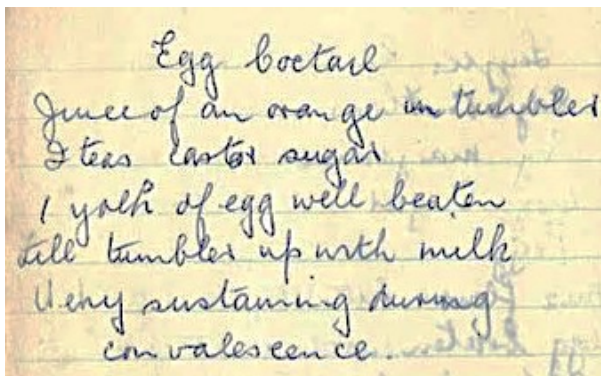 Egg Coctail
Juice of an orange in tumbler
2 teas castor sugar
1 yolk of egg well beaten
fill tumbler up with milk
Very sustaining during
convalescence.